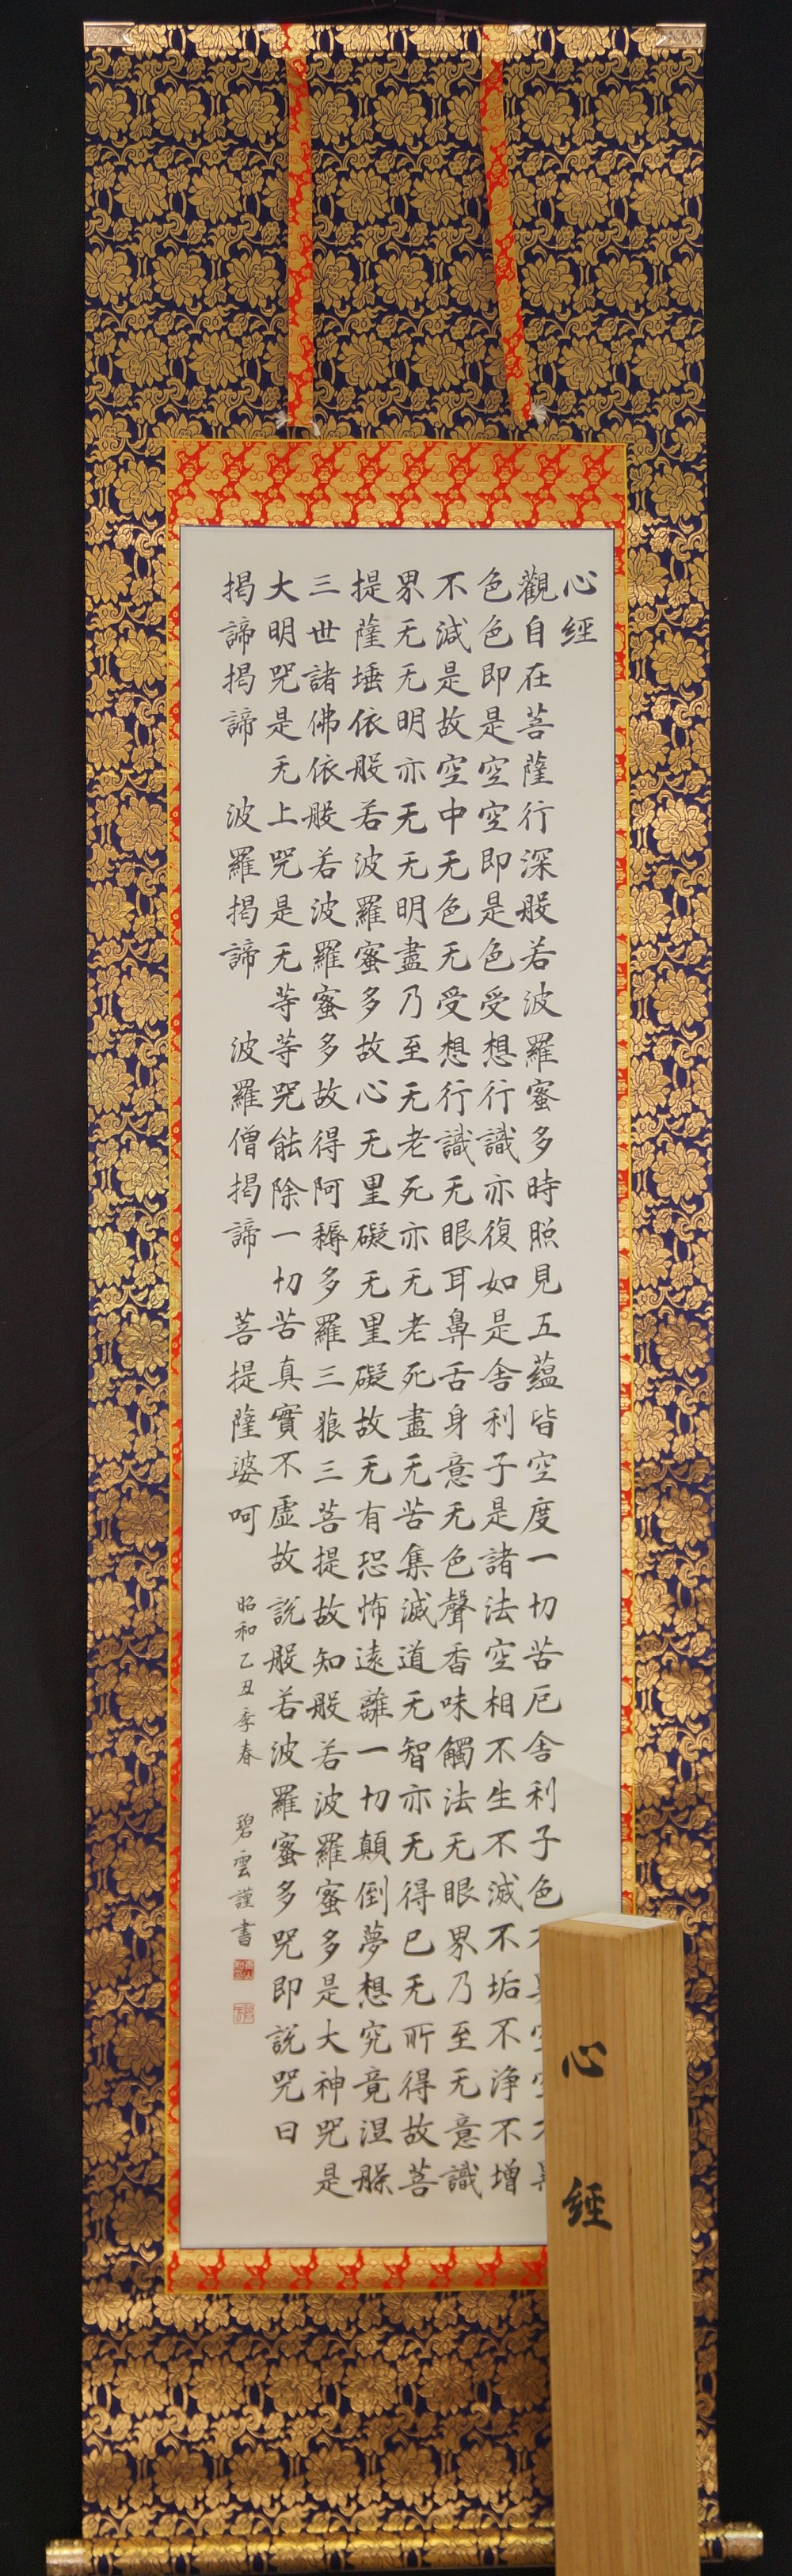 心經
觀自在菩薩行深般若波羅蜜多時照見五蘊皆空度一切苦厄舍利子色
色色即是空空即是色受想行識亦復如是舍利子是諸法空相不生不滅不垢不浄不增
不減是故空中无色无受想行識无眼耳鼻舌身意无色聲香味觸法无眼界乃至无意識
界无无明亦无无明盡乃至无老死亦无老死盡无苦集滅道无智亦无得已无所得故菩
提薩埵依般若波羅蜜多故心无罣礙无罣礙故无有恐怖遠離一切顛倒夢想究竟涅槃
三世諸佛依般若波羅蜜多故得阿耨多羅三藐三菩提故知般若波羅蜜多是大神咒是
大明咒是无上咒是无等等咒能除一切苦真實不虛故説般若波羅蜜多咒即説咒曰
揭諦揭諦 波羅揭諦 波羅僧揭諦 菩提薩婆呵
昭和乙丑季春 碧雲謹書
心經